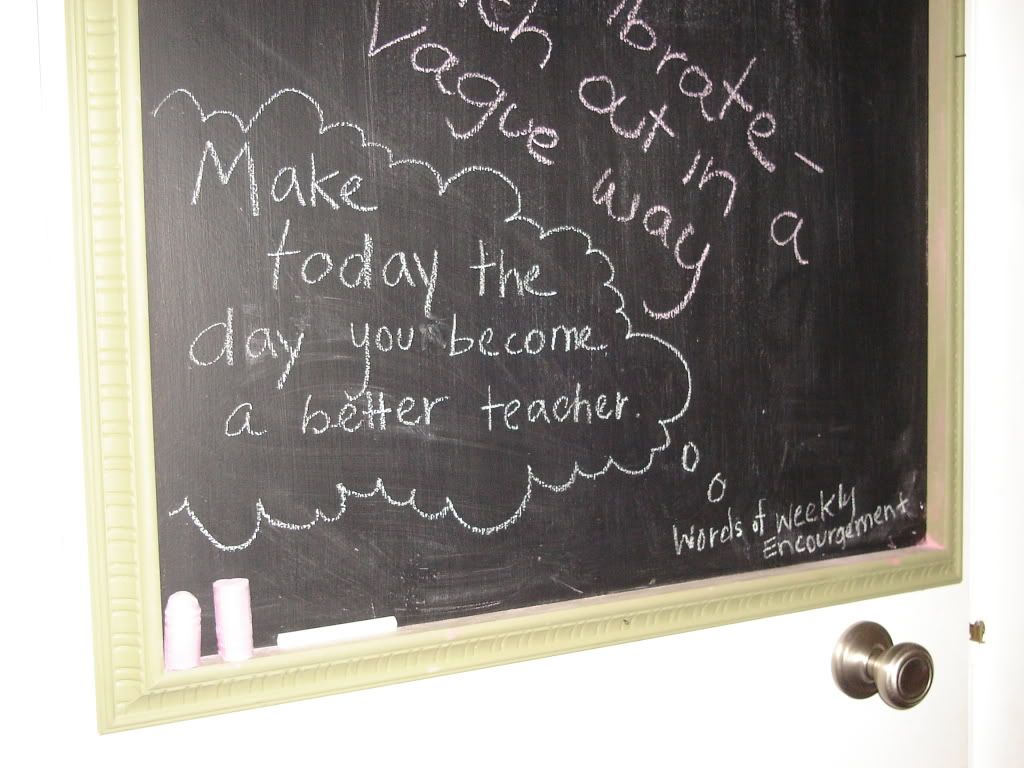 Vague
out in a
way
Make
today the
day you become
a better teacher.
Words of Weekly
Encourgement